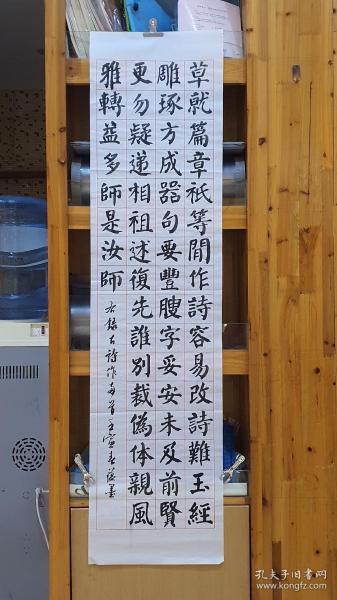 草就篇章祇等閒作詩容易改詩難玉經
雕琢方成器句要豐腴字妥安未及前賢
更勿疑遞相祖述復先誰別裁偽体親風
雅轉益多師是汝師
右錄古詩作
孔夫子旧书网
www.kongfz.com